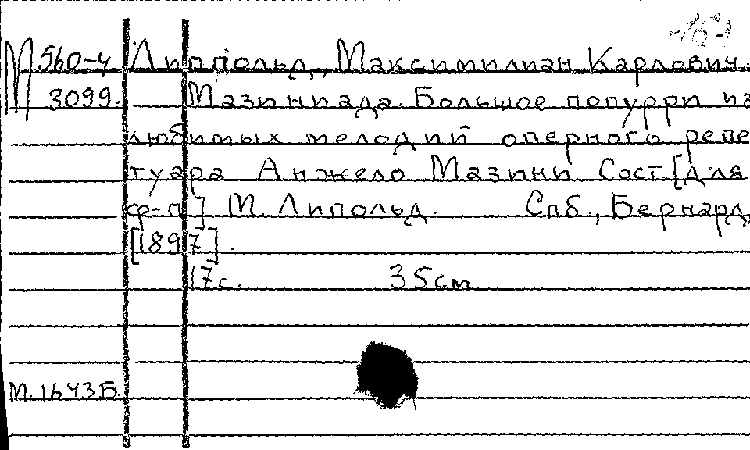 М 560-4 Липпольд, Максимилиан Карлович.
3099. Мазиниада. Большое попурри из
любимых мелодий оперного репе
туара Анжело Мазини Сост [для
ф-п] М. Липольд. Спб., Бернард,
[1897].
17с. 35см
М.1643Б